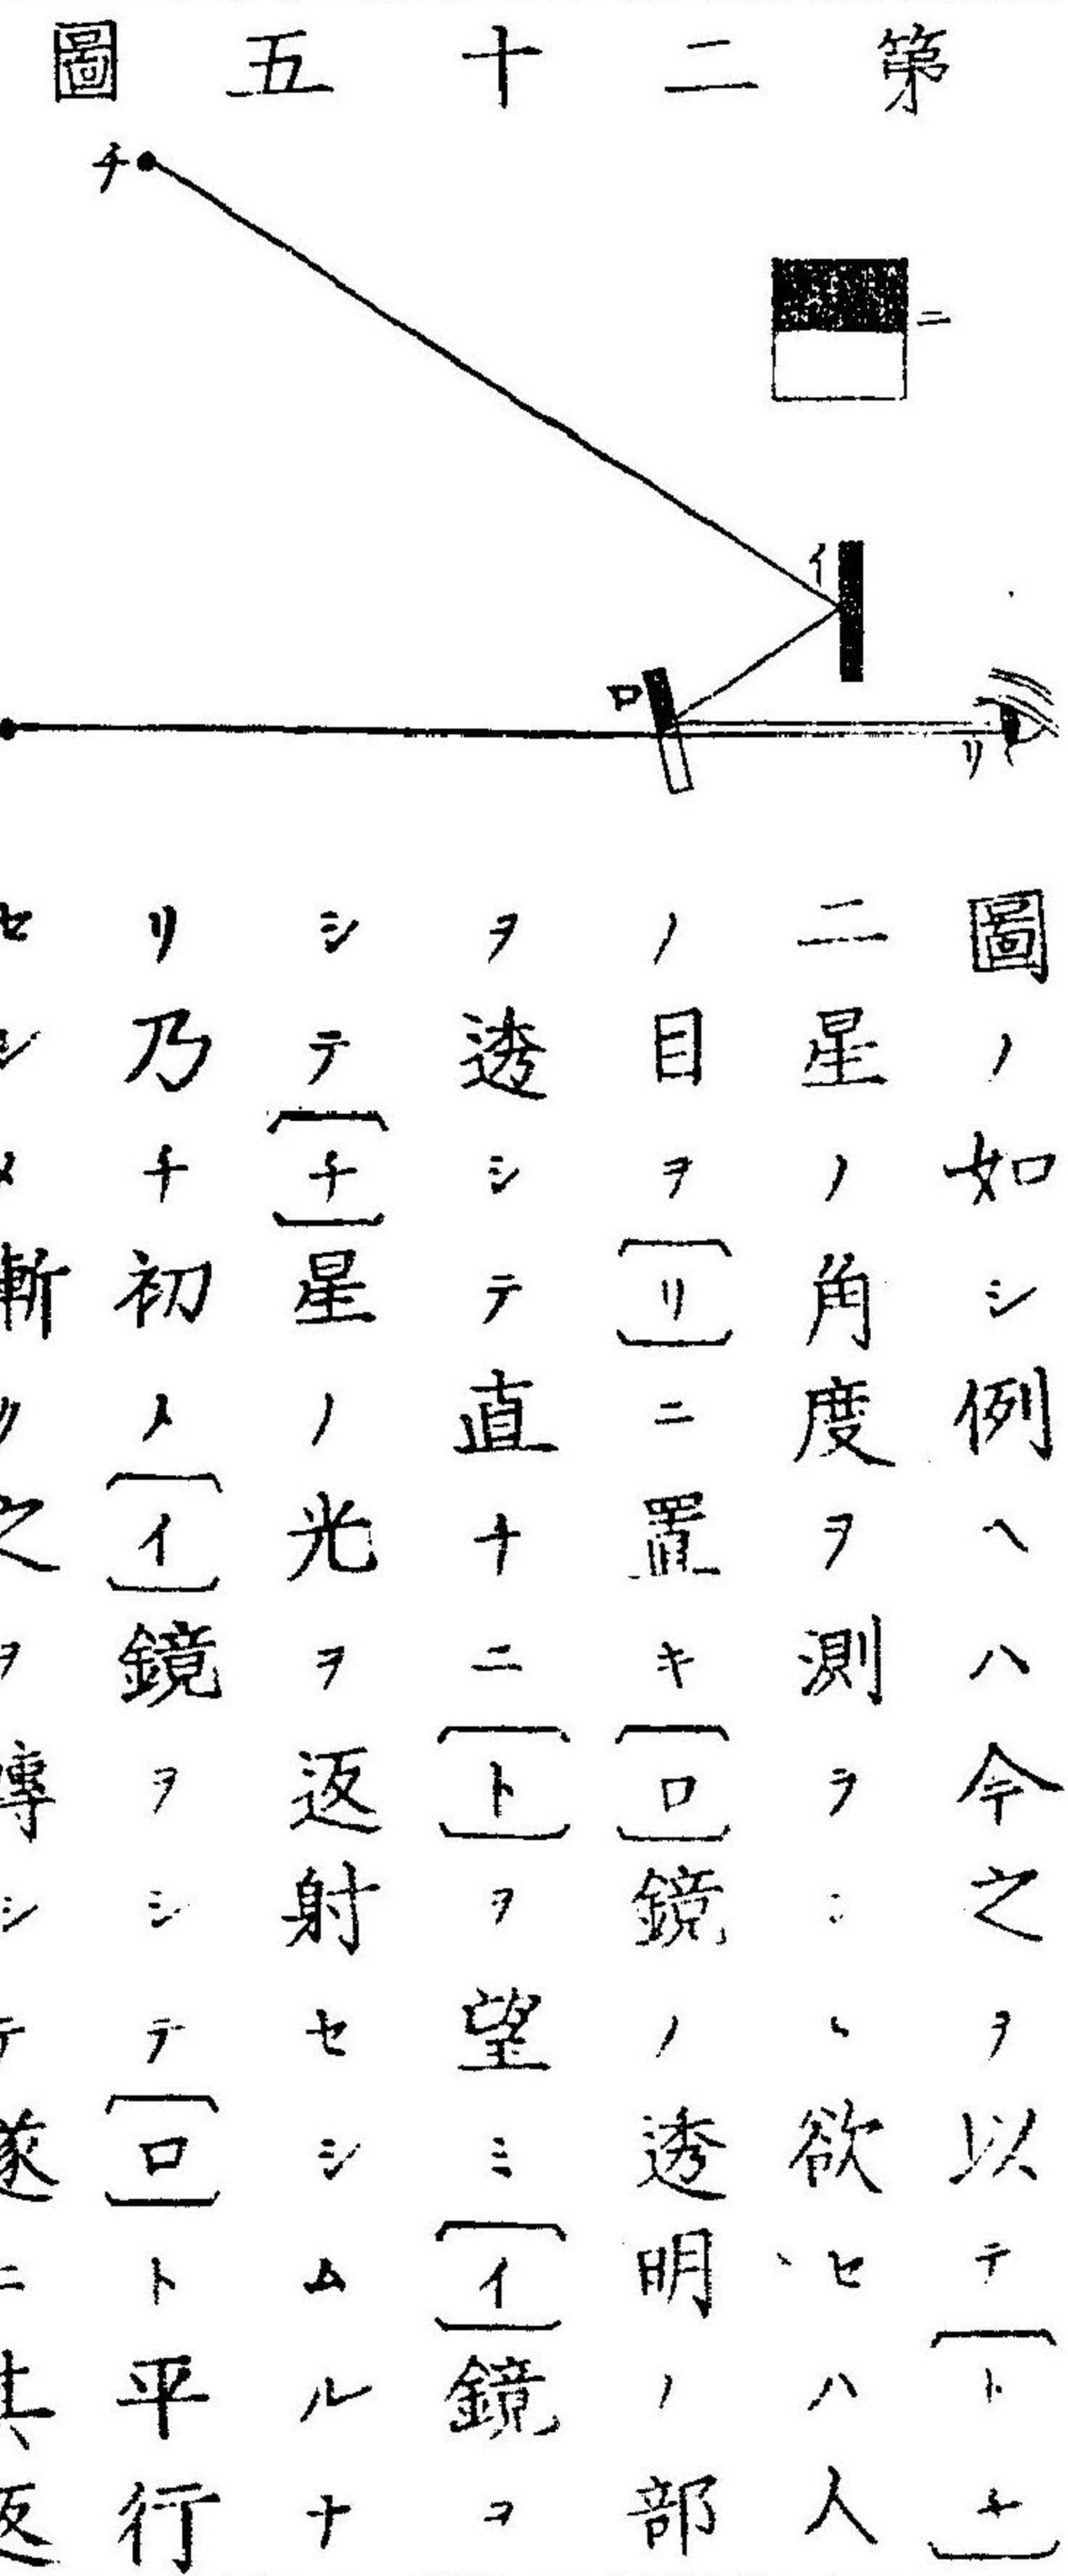 第二十五圖
チ
ニ
イ
ロ
リ
圖ノ如シ例ヘハ今之ヲ以テ[トチ]
二星ノ角度ヲ測ラント欲セハ人
ノ目ヲ[リ]ニ置キ[ロ]鏡ノ透明ノ部
ヲ透シテ直チニ[ト]ヲ望ミ[イ]鏡ヲ
シテ[チ]星ノ光ヲ返射セシムルナ
リ乃チ初メ[イ]鏡ヲシテ[ロ]ト平行
セシメ漸リ之ヲ轉シテ遂ニ其返